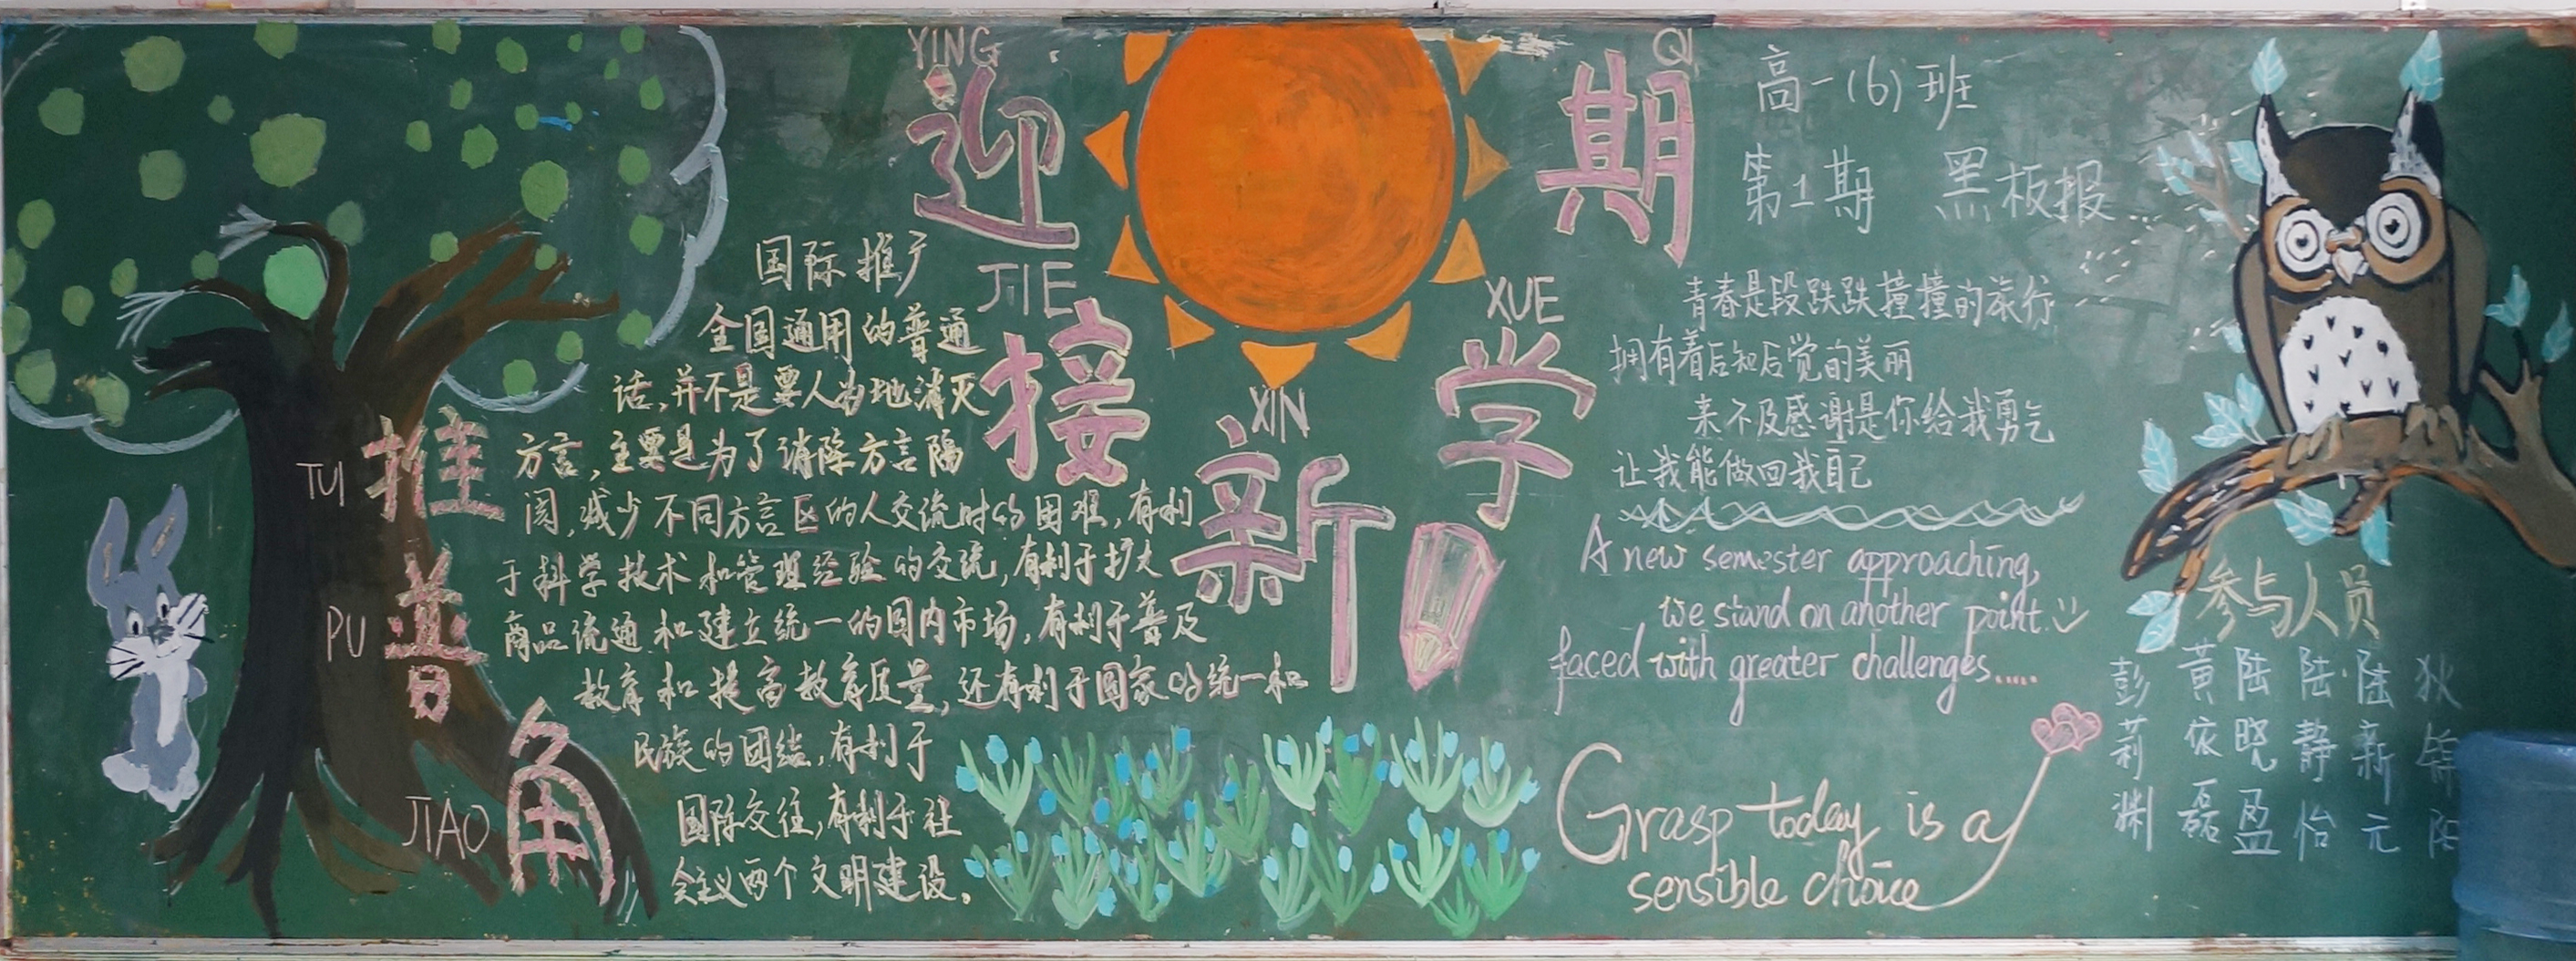 YING
迎
JIE
接
XIN
新
XUE
学
QI
期
TUI 推
PU 普
JIAO 角
国际推广
全国通用的普通
话,并不是要人为地消灭
方言,主要是为了消除方言隔
阂,减少不同方言区的人交流时的困难,有利
于科学技术和管理经验的交流,有利于扩大
商品流通和建立统一的国内市场,有利于普及
教育和提高教育质量,还有利于国家的统一和
民族的团结,有利于
国际交往,有利于社
会主义两个文明建设。
高一(6)班
第1期 黑板报
青春是段跌跌撞撞的旅行
拥有着后知后觉的美丽
来不及感谢是你给我勇气
让我能做回我自己
A new semester approaching,
we stand on another point.
faced with greater challenges.....
Grasp today is a
sensible choice
参与人员
彭莉渊
黄依磊
陆晓盈
陆静怡
陆新元
狄锦阳